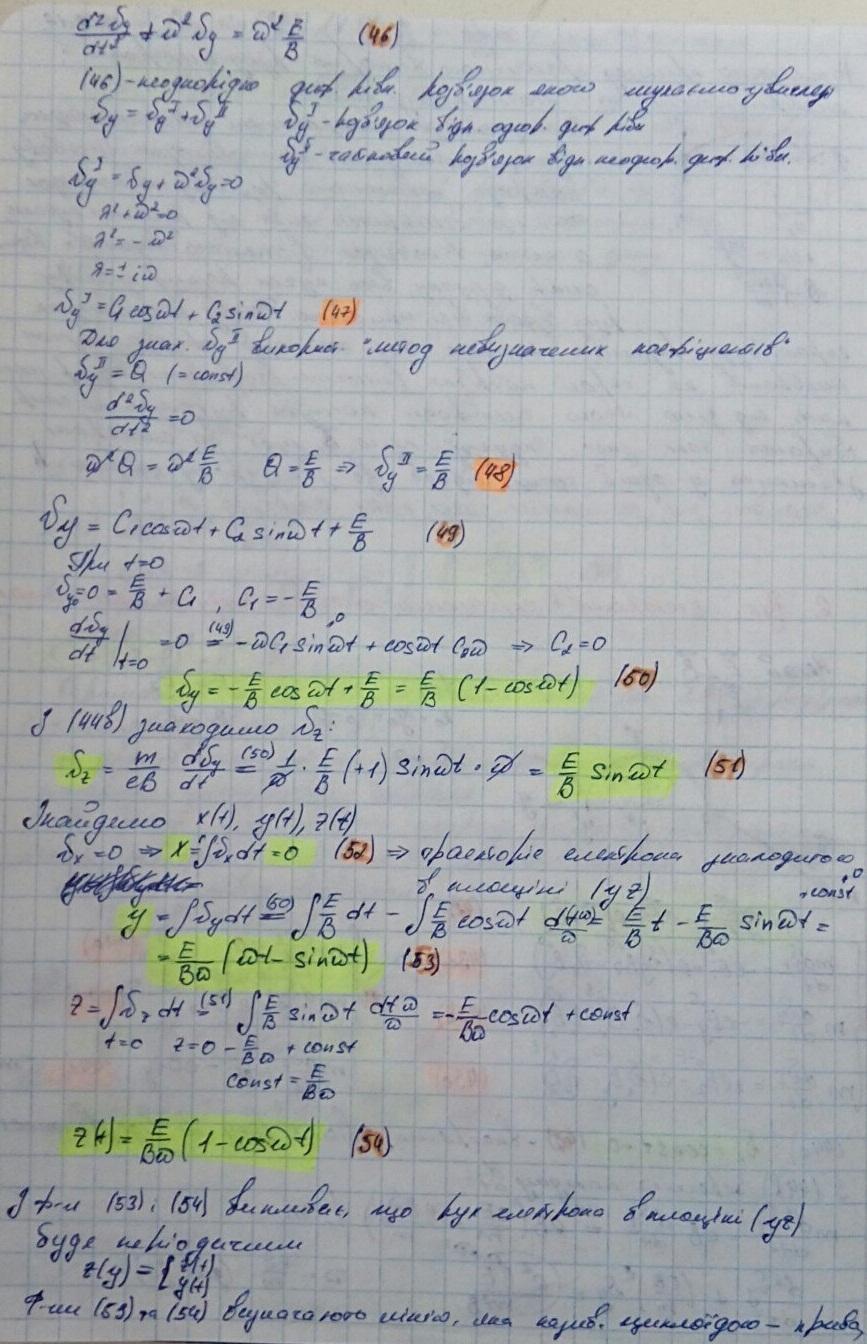 d²υy/dt² + ω²υy = ω² E/B (46)
(46) - неоднорідне диф. рівн. розв'язок якого шукаємо у вигляді
υy = υy^I + υy^II υy^I - розв'язок відп. однор. диф рівн
υy^II - частковий розв'язок відп. неоднор. диф. рівн.
υy^I = υy + ω²υy = 0
λ² + ω² = 0
λ² = - ω²
λ = ± iω
υy^I = C₁ cosωt + C₂ sinωt (47)
Для знах. υy^II використ. "метод невизначених коефіцієнтів"
υy^II = Q (= const)
d²υy/dt² = 0
ω²Q = ω² E/B Q = E/B => υy^II = E/B (48)
υy = C₁cosωt + C₂ sinωt + E/B (49)
При t=0
υy₀ = 0 = E/B + C₁ , C₁ = - E/B
dυy/dt |t=0 = 0 (49)= -ωC₁ sinωt + cosωt C₂ω => C₂ = 0
υy = - E/B cosωt + E/B = E/B (1 - cosωt) (50)
З (44в) знаходимо υz:
υz = m/eB dυy/dt (50)= 1/ω · E/B (+1) sinωt · ω = E/B sinωt (51)
Знайдемо x(t), y(t), z(t)
υx = 0 => x = ∫υx dt = 0 (52) => траекторіе електрона знаходится
в площині (yz)
y = ∫υy dt (50)= ∫ E/B dt - ∫ E/B cosωt d(tω)/ω = E/B t - E/Bω sinωt + const =
= E/Bω (ωt - sinωt) (53)
z = ∫υz dt (51)= ∫ E/B sinωt dtω/ω = - E/Bω cosωt + const
t=0 z=0 - E/Bω + const
const = E/Bω
z(t) = E/Bω (1 - cosωt) (54)
З ф-л (53) і (54) випливає, що рух електрона в площині (yz)
буде періодичним
z(y) = { z(t) y(t)
Ф-ли (53) та (54) визначають лінію, яка назив. циклоїдою - крива